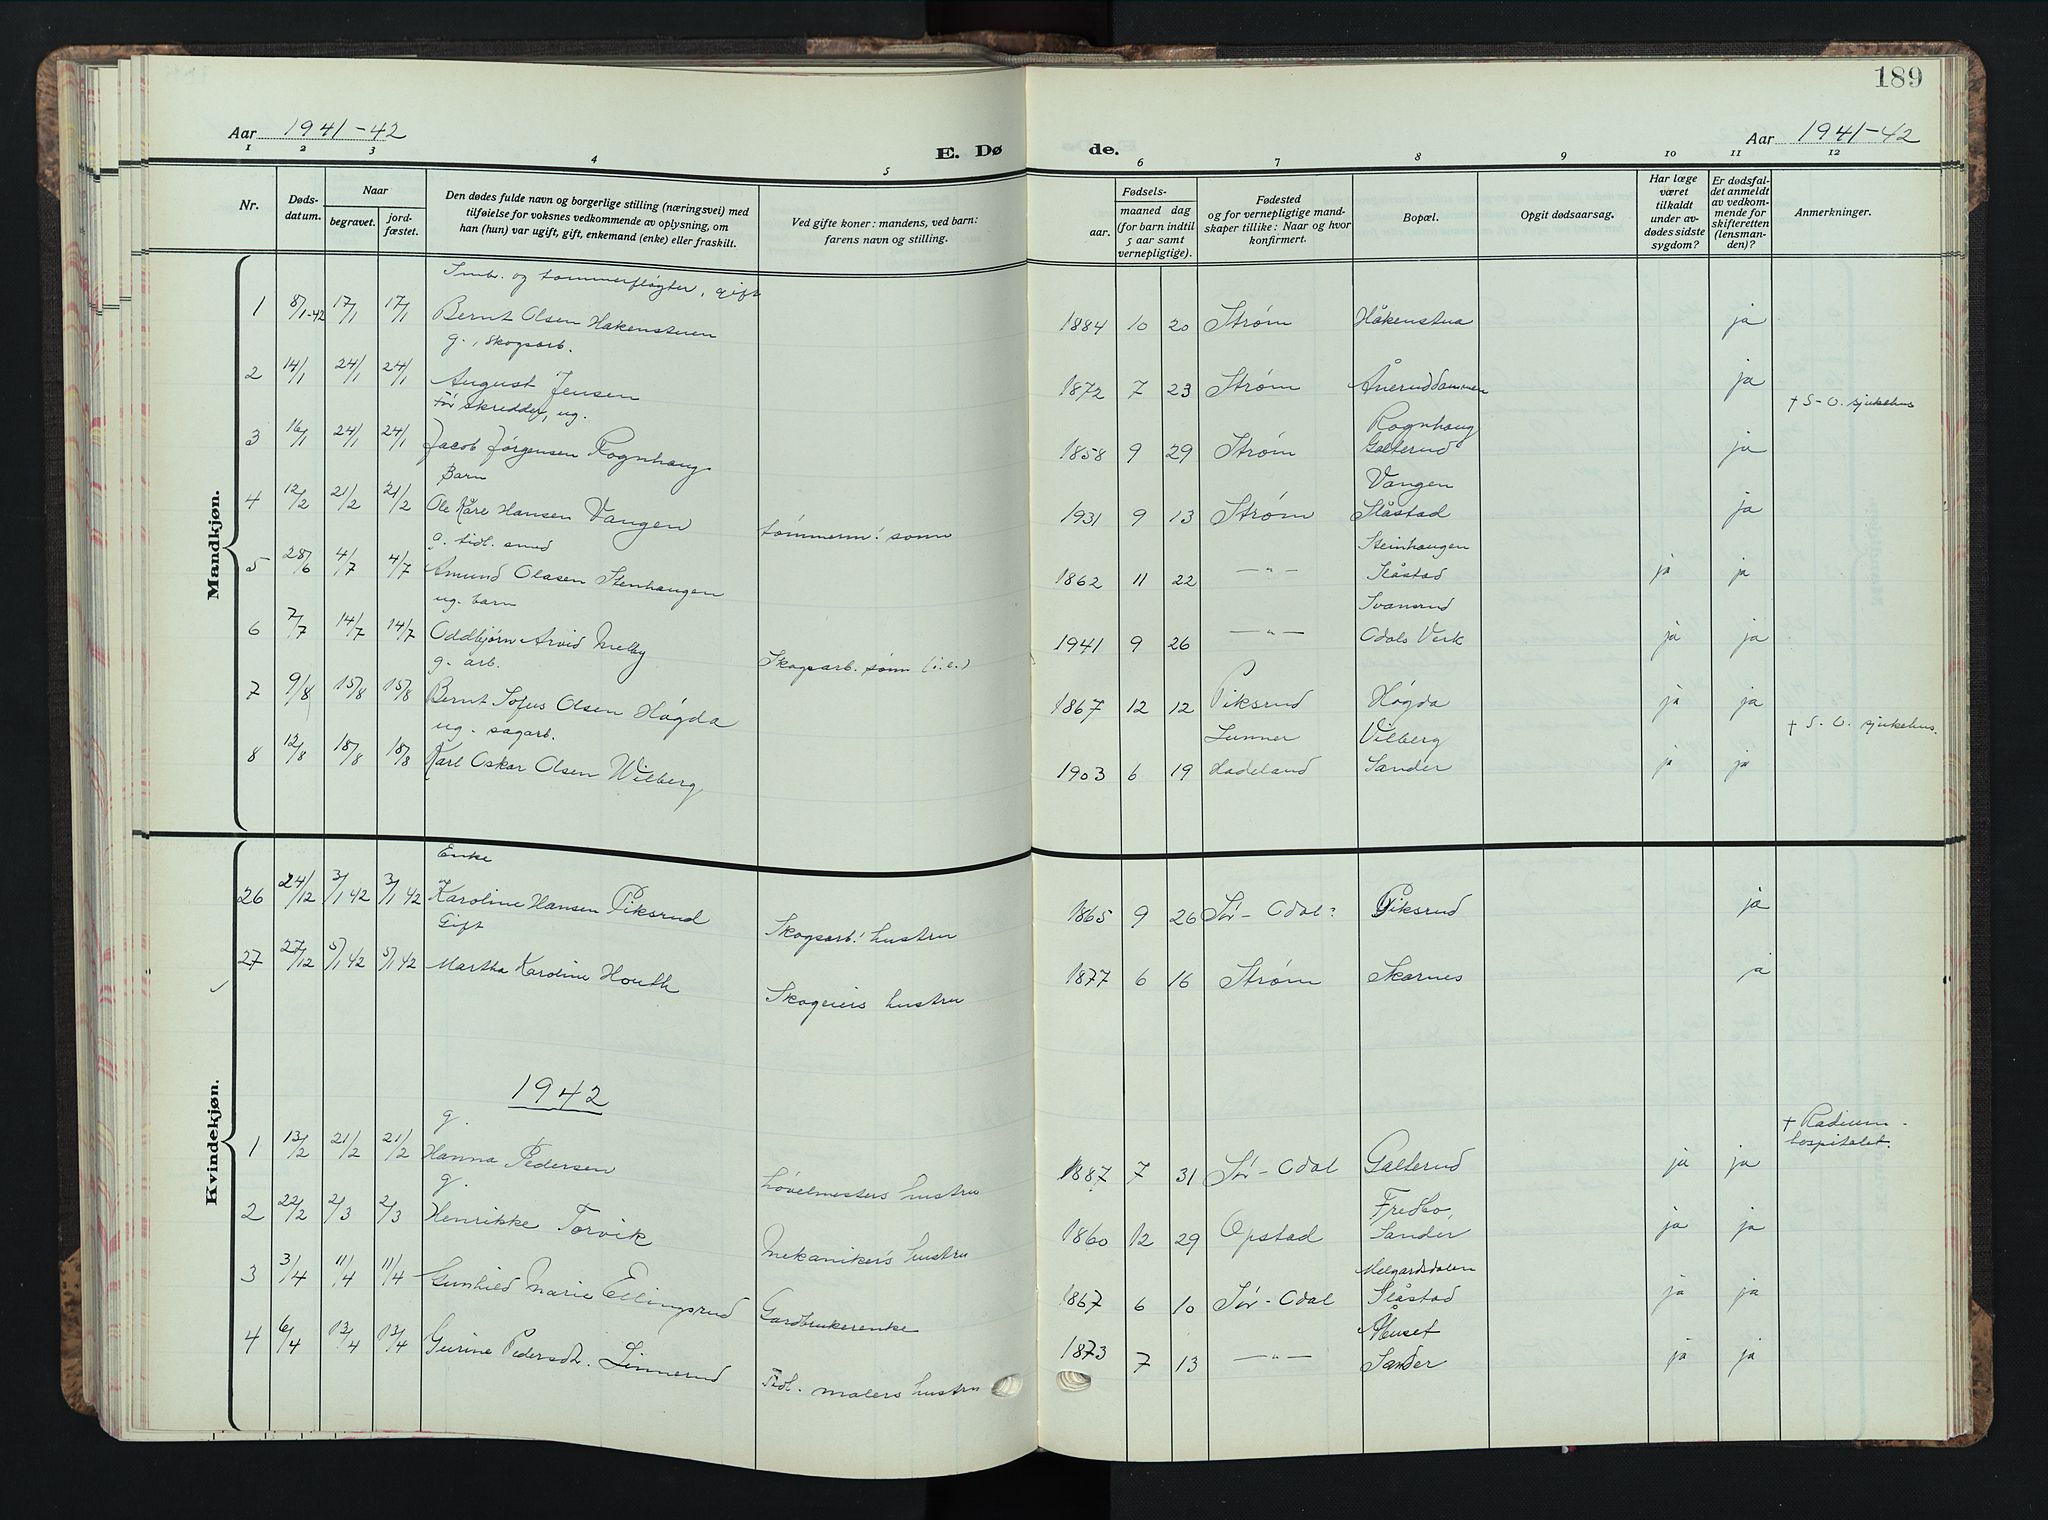 189
Aar 1941-42
Aar 1941-42
E. Døde.
1 2 3 4 5 6 7 8 9 10 11 12
Nr.
Døds-
datum.
Naar
begravet.
jord-
fæstet.
Den dødes fulde navn og borgerlige stilling (næringsvei) med
tilføielse for voksnes vedkommende av oplysning, om
han (hun) var ugift, gift, enkemand (enke) eller fraskilt.
Ved gifte koner: mandens, ved barn:
farens navn og stilling.
Fødsels-
aar.
maaned dag
(for barn indtil
5 aar samt
vernepligtige).
Fødested
og for vernepligtige mand-
skaper tillike: Naar og hvor
konfirmert.
Bopæl.
Opgit dødsaarsag.
Har læge
været
tilkaldt
under av-
dødes sidste
sygdom?
Er dødsfal-
det anmeldt
av vedkom-
mende for
skifteretten
(lensman-
den)?
Anmerkninger.
Mandkjøn.
Smbr. og tømmerfløter, gift
1 8/1-42 17/1 17/1 Bernt Olsen Hakenstuen 1884 10 20 Strøm Håkenstua ja
g., skogsarb.
2 14/1 24/1 24/1 August Jensen 1872 7 23 Strøm Åneruddammen ja
før skredder, ug. Rognhaug + S-O. sjukehus
3 16/1 24/1 24/1 Jacob Jørgensen Rognhaug 1858 9 29 Strøm Galterud ja
Barn Vangen
4 12/2 21/2 21/2 Ole Kåre Hansen Vangen tømmerm: sønn 1931 9 13 Strøm Slåstad ja
g. tidl. smed Steinhaugen
5 28/6 4/7 4/7 Amund Olasen Stenhaugen 1862 11 22 —"— Slåstad ja ja
ug. barn Svansrud
6 7/7 14/7 14/7 Oddbjørn Arvid Melby Skogsarb. sønn (i.e.) 1941 9 26 —"— Odals Verk ja ja
g. arb.
7 9/8 15/8 15/8 Bernt Sofus Olsen Høgda 1867 12 12 Piksrud Høgda ja ja
ug. sagarb. Lunner Vilberg + S-O. sjukehus.
8 12/8 18/8 18/8 Karl Oskar Olsen Wilberg 1903 6 19 Hadeland Sander ja ja
Kvindekjøn.
Enke
26 24/12 3/1 42 3/1 42 Karoline Hansen Piksrud Skogsarb! hustru 1865 9 26 Sør-Odal? Piksrud ja
Gift
27 27/12 5/1 42 5/1 42 Martha Karoline Houth Skogeiers hustru 1877 6 16 Strøm Skarnes ja
1942
g. + Radium-
hospitalet.
1 13/2 21/2 21/2 Hanna Pedersen Høvelmesters hustru 1887 7 31 Sør-Odal Galterud ja ja
g. Fredbo,
2 22/2 2/3 2/3 Henrikke Torvik Mekaniker's hustru 1860 12 29 Opstad Sander ja ja
Melgardsdalen
3 3/4 11/4 11/4 Gunhild Marie Ellingsrud Gardbrukerenke 1867 6 10 Sør-Odal Slåstad ja ja
4 6/4 13/4 13/4 Gurine Pedersdt. Linnerud Tidl. malers hustru 1873 7 13 —"— Sander ja ja